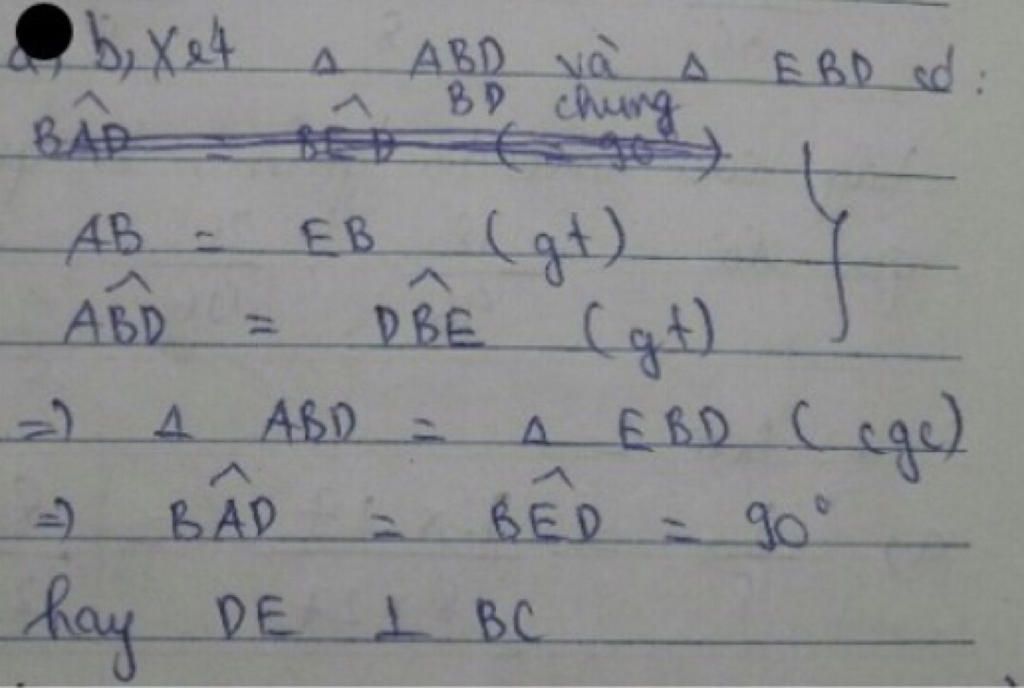 a, b, Xét Δ ABD và Δ EBD có:
BD chung
BAD̂ = BÊD (= 90)
AB = EB (gt)
AB̂D = DB̂E (gt)
=> Δ ABD = Δ EBD (cgc)
=> BÂD = BÊD = 90°
hay DE ⊥ BC